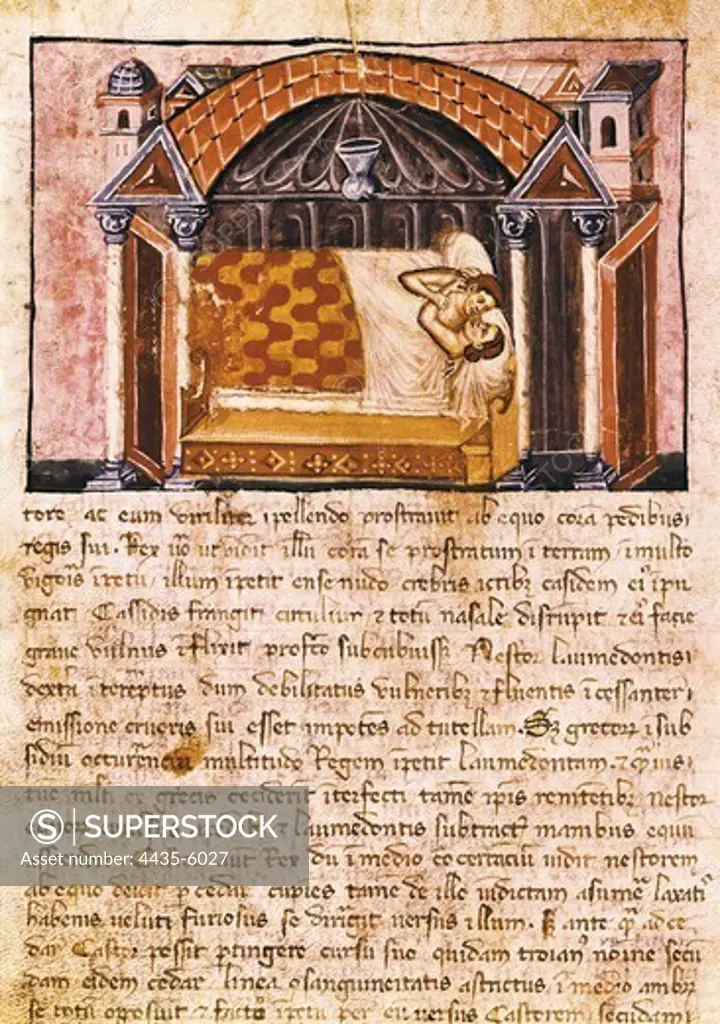 tore ac eum viriliter ipellendo prostravit ab equo corā pedibus
regis sui. Rex vo ut vidit illū corā se prostratum i terram, i multo
vigoris ipetu, illum ipetit ense nudo crebris actibz casidem ei ipu
gnat Cassidis frangit circulum & totū nasale disrumpit & ei facie
grave vulnus iflixit subcubuiss Nestor Laumedontis
dextā iteremptus dum debilitatus vulneribz & fluentis icessanter
emissione cruoris sui esset impotēs ad tutellam. grecorz i sub
sidiū multitudo Regem ipetit Laumedontam. &
ex grecis ceciderīt iterfecti tamē ipis renitētibz Nestor
Laumedontis subtract manibus equū
Rex dū i medio certaciū vidit nestorem
ab equo cupiēs tamē de illo vidictam asumē laxati
habenis veluti furiosus se dirigit versus illum. ante q ad ce
dar Castor possit ptingere cursu suo quidam troian noīe secū
dam eidem cedar linea osanguineitatis astrictus, i medio ambor
se totū opposuit & facto ipetu per eū versus Castorem, secūdam
SUPERSTOCK
Asset number: 4435-6027